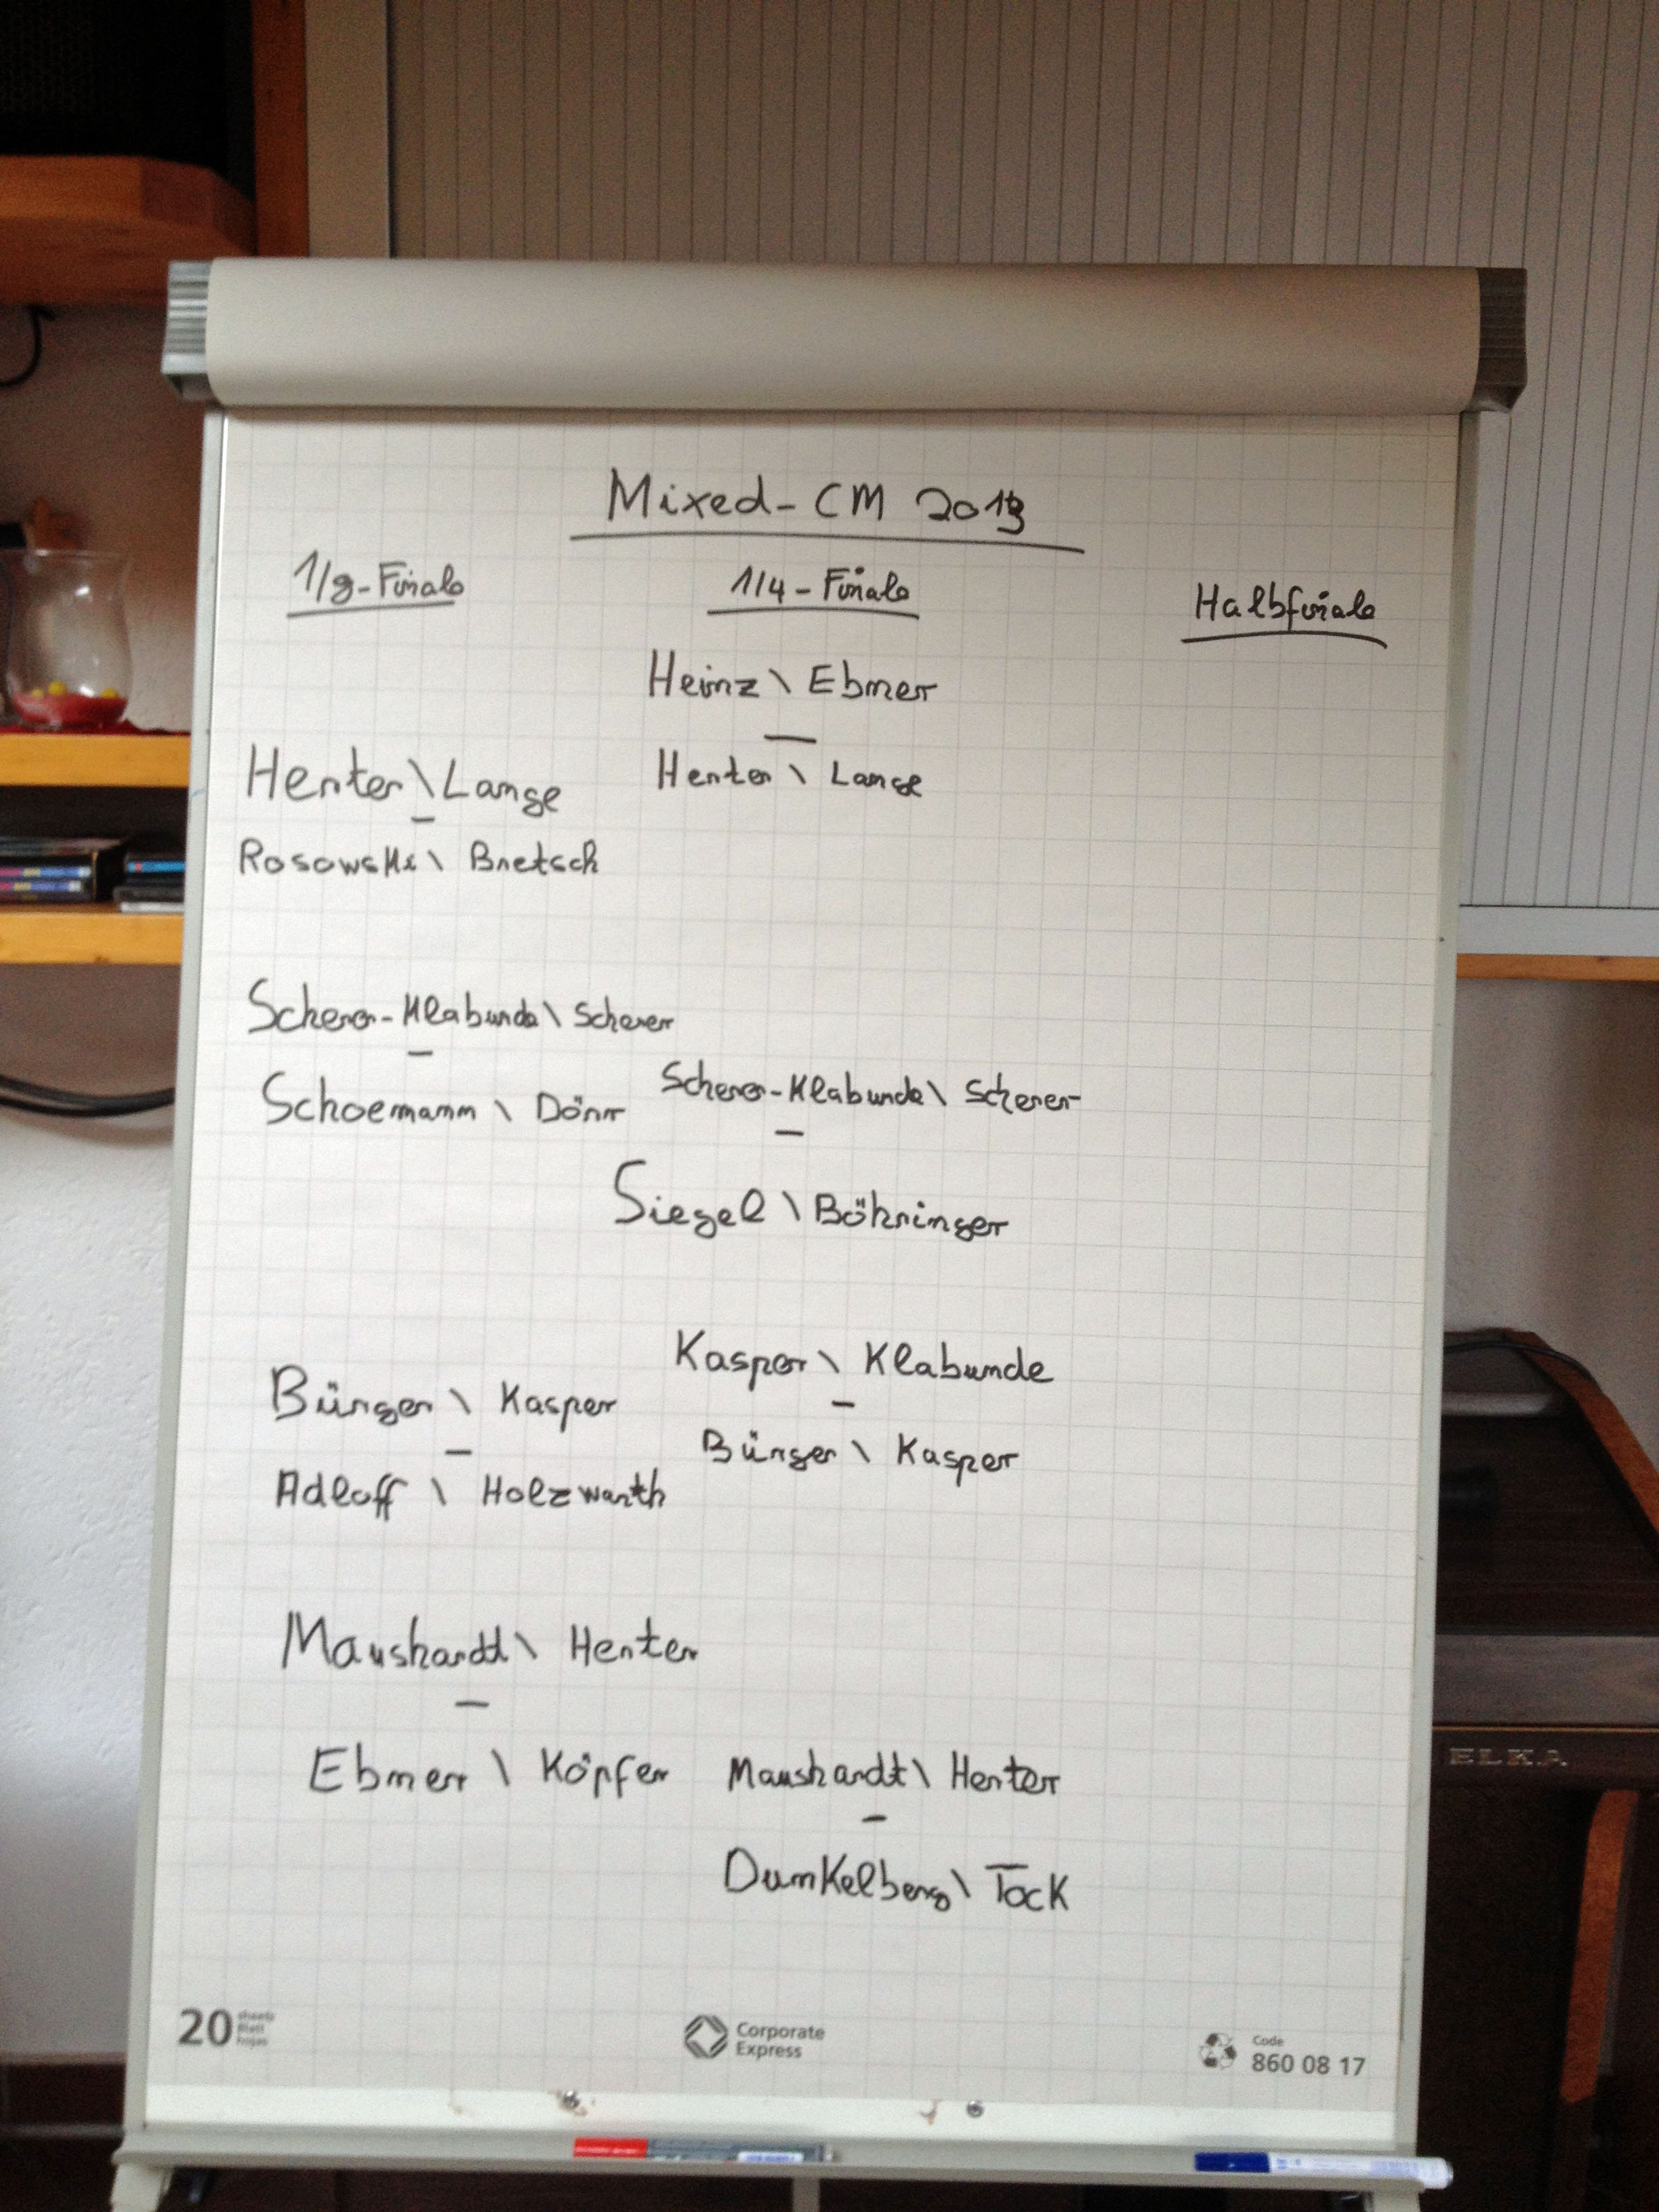 Mixed-CM 2013
1/8-Finale
1/4-Finale
Halbfinale
Heinz \ Ebner
—
Henter \ Lange
Henter \ Lange
—
Rosowski \ Bretsch
Scherer-Klabunde \ Scherer
—
Schoemann \ Dörr
Scherer-Klabunde \ Scherer
—
Siegel \ Böhringer
Kasper \ Klabunde
—
Bürger \ Kasper
Bürger \ Kasper
—
Adloff \ Holzwarth
Maushardt \ Henter
—
Ebner \ Köpfer
Maushardt \ Henter
—
Dunkelberg \ Tack
20 sheets
Blatt
hojas
Corporate
Express
Code
860 08 17
ELKA